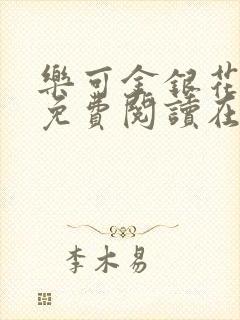 樂可金銀花
免費閱讀在
李木易